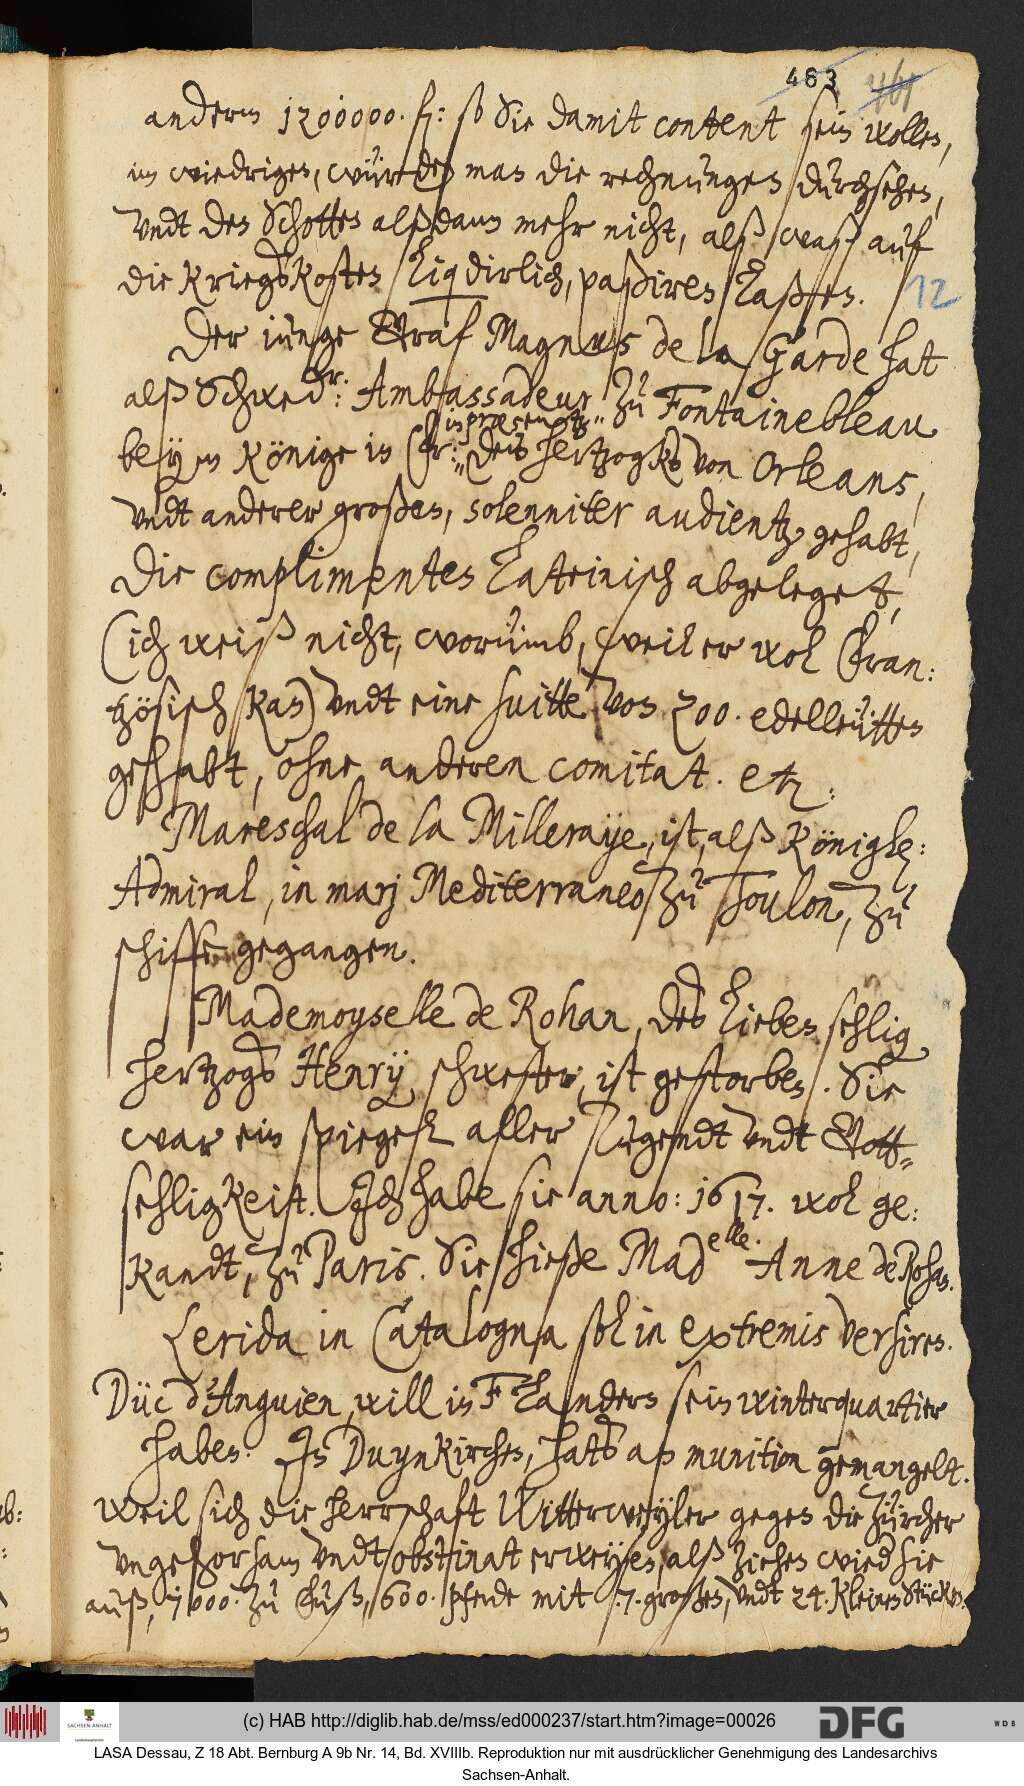 463 461
andern 1200000. fl: so Sie damit content sein wollen,
im wiedrigen, würden man die rechnungen durchsehen,
undt den Schotten alßdann mehr nicht, alß waß auf
die KriegsKosten liqdirlich, paßiren laßen. 12
Der iunge Graf Magnus de la Garde hat
alß Schwed.r: Ambassadeur zu Fontainebleau
beym Könige in Fr: in præsentz des Hertzogks von Orleans,
undt anderer großen, solenniter audientz gehabt,
Die complimenten Lateinisch abgeleget,
(ich weiß nicht, worumb, weil er wol Fran:
tzösisch kan) undt eine suitte von 200. edelleütten
gehabt, ohne anderen comitat. etz:
Mareschal de la Milleraÿe, ist, alß Königle:
Admiral, in marj Mediterraneo zu Toulon, zu
schiffe gegangen.
Mademoyselle de Rohan, des lieben sehlig
hertzogs Henrÿ, schwester, ist gestorben. Sie
war ein spiegel aller Tugendt undt Gott-
sehligKeit. Ich habe sie anno: 1617. wol ge:
kandt, zu Paris. Sie hieße Madelle. Anne de Rohan.
Lerida in Catalogna sol in extremis versiren.
Düc d'Anguien, will in Flandern sein winterquartier
haben. In Duynkirchen, hats an munition gemangelt.
Weil sich die herrschaft Witterweÿler gegen die Zürcher
ungehorsam undt obstinat erweÿsen, alß ziehen wied sie
auß, 7000. zu Fuß, 600. pferde mit 7. großen, undt 24. kleinen Stücken.
(c) HAB http://diglib.hab.de/mss/ed000237/start.htm?image=00026
DFG
WDB
SACHSEN-ANHALT
LASA Dessau, Z 18 Abt. Bernburg A 9b Nr. 14, Bd. XVIIIb. Reproduktion nur mit ausdrücklicher Genehmigung des Landesarchivs
Sachsen-Anhalt.